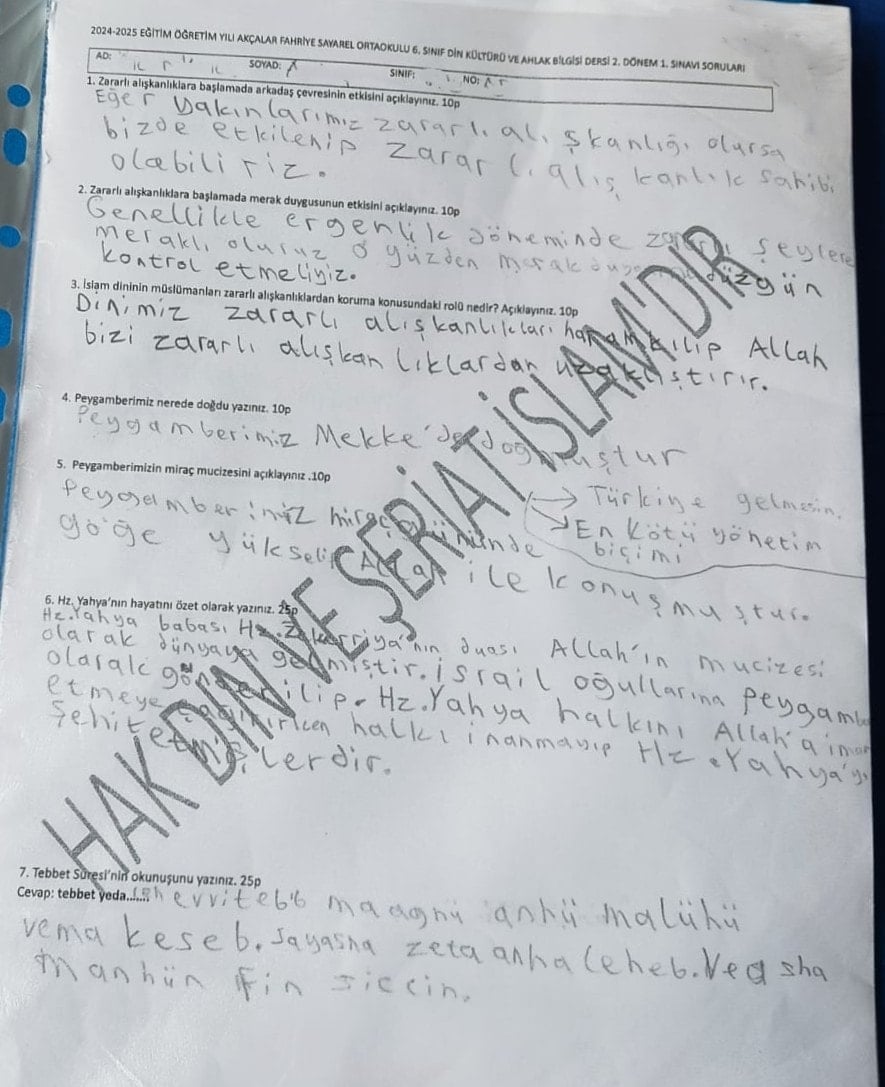 2024-2025 EĞİTİM ÖĞRETİM YILI AKÇALAR FAHRİYE SAYAREL ORTAOKULU 6. SINIF DİN KÜLTÜRÜ VE AHLAK BİLGİSİ DERSİ 2. DÖNEM 1. SINAVI SORULARI
AD: SOYAD: A SINIF: NO:
1. Zararlı alışkanlıklara başlamada arkadaş çevresinin etkisini açıklayınız. 10p
Eğer yakınlarımız zararlı alışkanlığı olursa
bizde etkilenip zararlı alışkanlık sahibi
olabiliriz.
2. Zararlı alışkanlıklara başlamada merak duygusunun etkisini açıklayınız. 10p
Genellikle ergenlik döneminde zararlı şeylere
meraklı oluruz o yüzden merak düzgün
kontrol etmeliyiz.
3. İslam dininin müslümanları zararlı alışkanlıklardan koruma konusundaki rolü nedir? Açıklayınız. 10p
Dinimiz zararlı alışkanlıkları haram kılıp Allah
bizi zararlı alışkanlıklardan uzaklıştırır.
4. Peygamberimiz nerede doğdu yazınız. 10p
Peygamberimiz Mekke'de doğmuştur
5. Peygamberimizin miraç mucizesini açıklayınız .10p
Peygamberimiz miraç gününde
göğe yükselip Allah ile konuşmuştur.
→ Türkiye gelmesin.
→ En kötü yönetim
biçimi
6. Hz. Yahya'nın hayatını özet olarak yazınız. 25p
Hz.Yahya babası Hz.Zekerriya'nın duası Allah'ın mucizesi
olarak dünyaya gelmiştir. İsrail oğullarına peygamber
olarak gönderilip. Hz.Yahya halkını Allah'a iman
etmeye çağırırken halkı inanmayıp Hz.Yahya'yı
şehit etmişlerdir.
7. Tebbet Sûresi'nin okunuşunu yazınız. 25p
Cevap: tebbet yeda.......leh evvitebb maagnü anhü malühü
vema keseb. Sayasna zeta anha leheb. Veq sha
manhün fin siccin.
HAK DİN VE ŞERİAT İSLAM'DIR